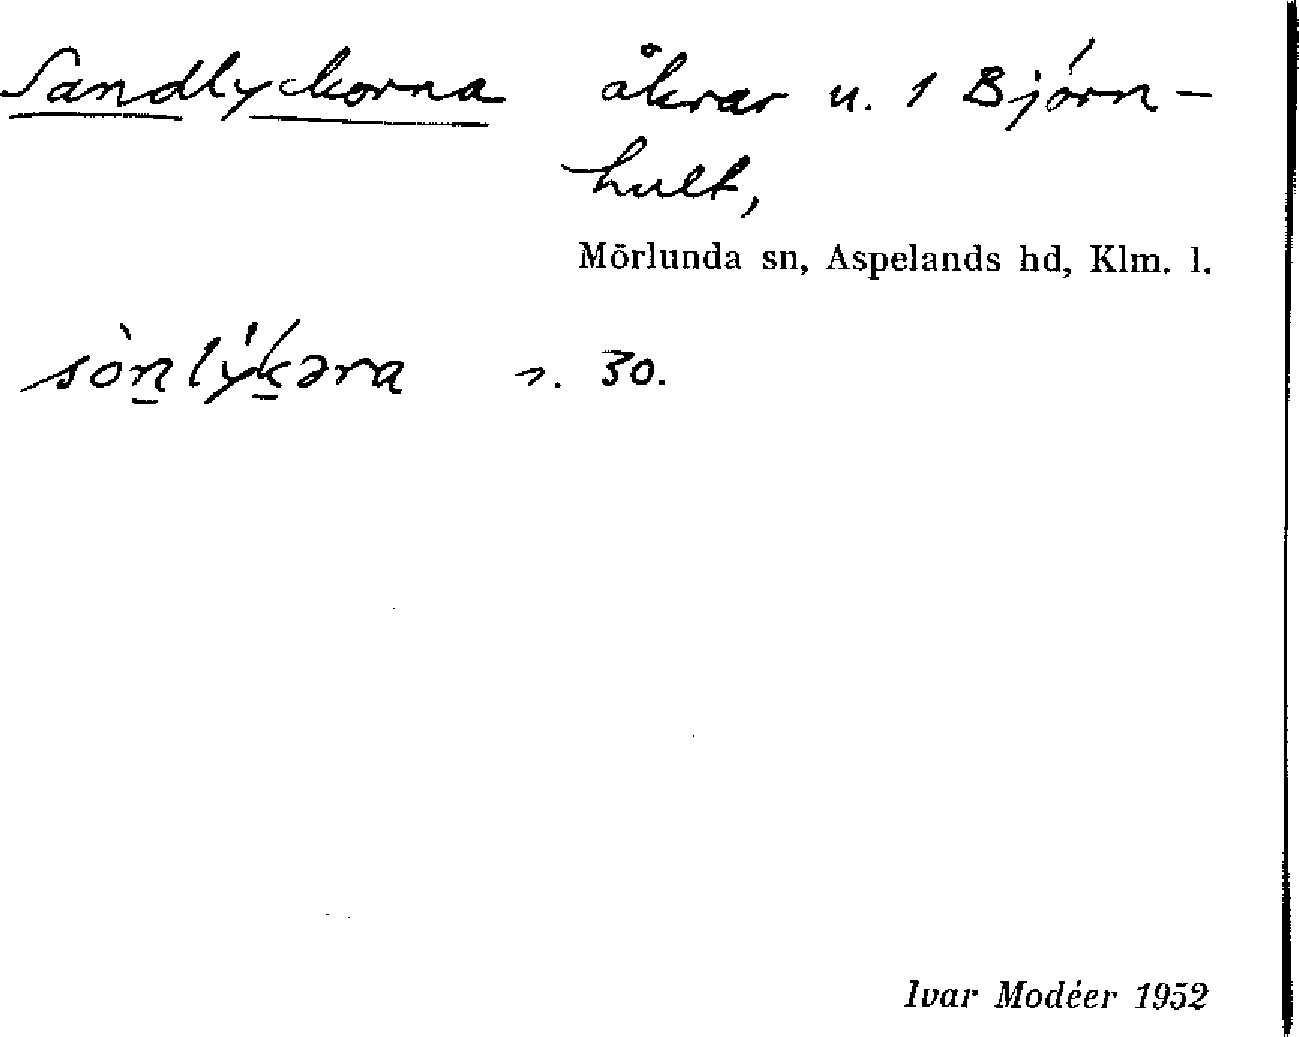 Sandlyckorna åkrar u. 1 Björn-
hult,
Mörlunda sn, Aspelands hd, Klm. l.
sòn̠lýk̠əra s. 30.
Ivar Modéer 1952